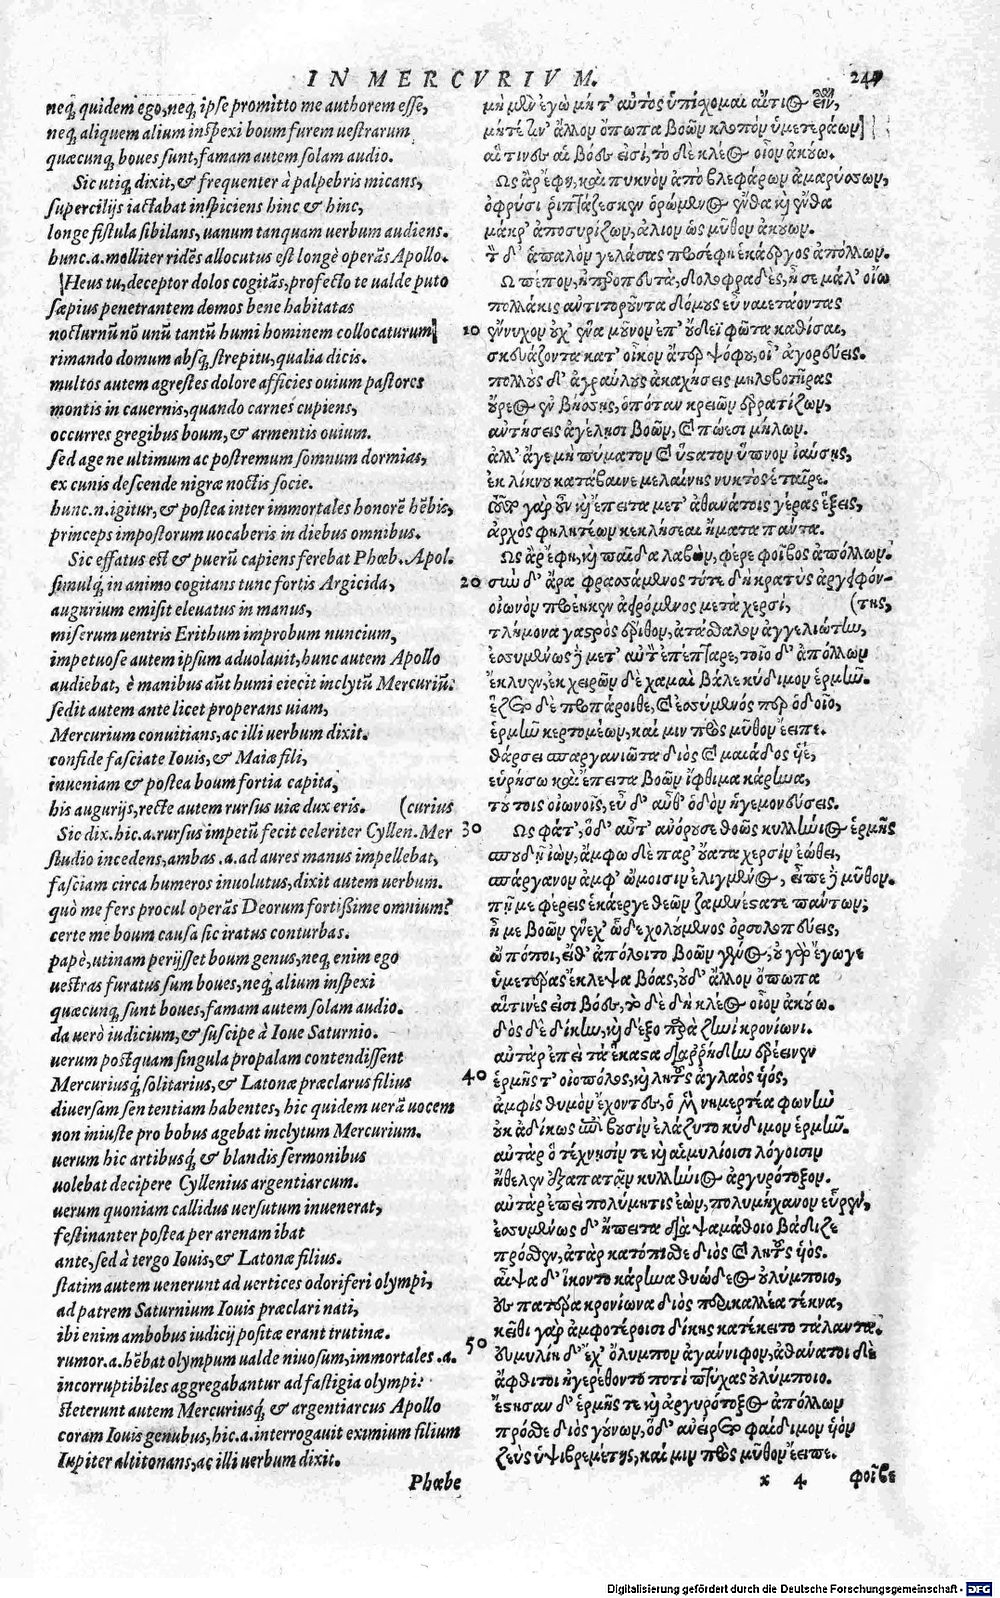 IN MERCVRIVM.
neq; quidem ego, neq; ipse promitto me authorem esse,
neq; aliquem alium inspexi boum furem uestrarum
quæcunq; boues sunt, famam autem solam audio.
Sic utiq; dixit, & frequenter à palpebris micans,
supercilijs iactabat inspiciens hinc & hinc,
longe fistula sibilans, uanum tanquam uerbum audiens.
hunc .a. molliter ridẽs allocutus est longè operãs Apollo.
Heus tu, deceptor dolos cogitãs, profecto te ualde puto
sæpius penetrantem domos bene habitatas
nocturnũ nõ unũ tantũ humi hominem collocaturum
rimando domum absq; strepitu, qualia dicis.
multos autem agrestes dolore afficies ouium pastores
montis in cauernis, quando carnes cupiens,
occurres gregibus boum, & armentis ouium.
sed age ne ultimum ac postremum somnum dormias,
ex cunis descende nigræ noctis socie.
hunc .n. igitur, & postea inter immortales honorẽ hẽbis,
princeps impostorum uocaberis in diebus omnibus.
Sic effatus est & puerũ capiens ferebat Phœb. Apol.
simulq; in animo cogitans tunc fortis Argicida,
augurium emisit eleuatus in manus,
miserum uentris Erithum improbum nuncium,
impetuose autem ipsum aduolauit, hunc autem Apollo
audiebat, è manibus aũt humi eiecit inclytũ Mercuriũ.
sedit autem ante licet properans uiam,
Mercurium conuitians, ac illi uerbum dixit.
confide fasciate Iouis, & Maiæ fili,
inueniam & postea boum fortia capita,
his augurijs, recte autem rursus uiæ dux eris. (curius
Sic dix. hic .a. rursus impetũ fecit celeriter Cyllen. Mer
studio incedens, ambas .a. ad aures manus impellebat,
fasciam circa humeros inuolutus, dixit autem uerbum.
quò me fers procul operãs Deorum fortißime omnium?
certe me boum causa sic iratus conturbas.
papè, utinam perijsset boum genus, neq; enim ego
uestras furatus sum boues, neq; alium inspexi
quæcunq; sunt boues, famam autem solam audio.
da uerò iudicium, & suscipe à Ioue Saturnio.
uerum postquam singula propalam contendissent
Mercuriusq; solitarius, & Latonæ præclarus filius
diuersam sententiam habentes, hic quidem uerã uocem
non iniuste pro bobus agebat inclytum Mercurium.
uerum hic artibusq; & blandis sermonibus
uolebat decipere Cyllenius argentiarcum.
uerum quoniam callidus uersutum inuenerat,
festinanter postea per arenam ibat
ante, sed à tergo Iouis, & Latonæ filius.
statim autem uenerunt ad uertices odoriferi olympi,
ad patrem Saturnium Iouis præclari nati,
ibi enim ambobus iudicij positæ erant trutinæ.
rumor .a. hẽbat olympum ualde niuosum, immortales .a.
incorruptibiles aggregabantur ad fastigia olympi.
steterunt autem Mercuriusq; & argentiarcus Apollo
coram Iouis genubus, hic .a. interrogauit eximium filium
Iupiter altitonans, ac illi uerbum dixit.
Phœbe
μὴ μὲν ἐγὼ μή τ' αὐτὸς ὑπίχομαι αἴτιος εἶναι,
μήτέ τιν' ἄλλον ὄπωπα βοῶν κλοπὸν ὑμετεράων
αἵ τινες αἱ βόες εἰσί, τὸ δὲ κλέος οἷον ἀκούω.
Ὣς ἄρ' ἔφη, καὶ πυκνὸν ἀπὸ βλεφάρων ἀμαρύσσων,
ὀφρύσι ῥιπτάζεσκεν ὁρώμενος ἔνθα κỳ ἔνθα
μάκρ' ἀποσυρίζων, ἅλιον ὡς μῦθον ἀκούων.
τὸν δ' ἁπαλὸν γελάσας προσέφη ἑκάεργος ἀπόλλων.
Ὦ πέπον, ἠπεροπευτά, δολοφραδές, ἦ σε μάλ' οἴω
πολλάκις ἀντιτοροῦντα δόμους εὖ ναιετάοντας
10 ἔννυχον οὐχ' ἕνα μοῦνον ἐπ' οὔδεϊ φῶτα καθίσαι,
σκευάζοντα κατ' οἶκον ἄτερ ψόφου, οἷ' ἀγορεύεις.
πολλοὺς δ' ἀγραύλους ἀκαχήσεις μηλοβοτῆρας
οὔρεος ἐν βήσσῃς, ὁπόταν κρειῶν ἐρατίζων,
αὐτήσεις ἀγέλῃσι βοῶν, καὶ πώεσι μήλων.
ἀλλ' ἄγε μὴ πύματον καὶ ὕστατον ὕπνον ἰαύσῃς,
ἐκ λίκνου κατάβαινε μελαίνης νυκτὸς ἑταῖρε.
τοῦτο γὰρ οὖν καὶ ἔπειτα μετ' ἀθανάτοις γέρας ἕξεις,
ἀρχὸς φηλητέων κεκλήσεαι ἤματα πάντα.
Ὣς ἄρ' ἔφη, καὶ παῖδα λαβὼν, φέρε φοῖβος ἀπόλλων.
20 σὺν δ' ἄρα φρασσάμενος τότε δὴ κρατὺς ἀργειφόν-
οἰωνὸν προέηκεν ἀειρόμενος μετὰ χερσί, (της,
τλήμονα γαστρὸς ἔριθον, ἀτάσθαλον ἀγγελιώτην,
ἐσσυμένως δὲ μετ' αὐτὸν ἐπέπταρε, τοῖο δ' ἀπόλλων
ἔκλυεν, ἐκ χειρῶν δὲ χαμαὶ βάλε κύδιμον ἑρμῆν.
ἕζετο δὲ προπάροιθε, καὶ ἐσσύμενός περ ὁδοῖο,
ἑρμῆν κερτομέων, καί μιν πρὸς μῦθον ἔειπε.
θάρσει σπαργανιῶτα διὸς καὶ μαιάδος υἱέ,
εὑρήσω καὶ ἔπειτα βοῶν ἴφθιμα κάρηνα,
τούτοις οἰωνοῖς, εὖ δ' αὖθ' ὁδὸν ἡγεμονεύσεις.
30 Ὣς φάτ', ὁ δ' αὖτ' ἀνόρουσε θοῶς κυλλήνιος ἑρμῆς
σπουδῇ ἰὼν, ἄμφω δὲ παρ' οὔατα χερσὶν ἐώθει,
σπάργανον ἀμφ' ὤμοισιν ἐλιγμένος, εἶπε δὲ μῦθον.
πῆ με φέρεις ἑκάεργε θεῶν ζαμενέστατε πάντων;
ἦ με βοῶν ἕνεχ' ὧδε χολούμενος ὀρσολοπεύεις,
ὢ πόποι, εἴθ' ἀπόλοιτο βοῶν γένος, οὐ γὰρ ἔγωγε
ὑμετέρας ἔκλεψα βόας, οὐδ' ἄλλον ὄπωπα
αἵτινές εἰσι βόες, τὸ δὲ δὴ κλέος οἷον ἀκούω.
δὸς δὲ δίκην, καὶ δέξο παρὰ ζηνὶ κρονίωνι.
αὐτὰρ ἐπεὶ τὰ ἕκαστα διαρρήδην ἐρέεινεν
40 ἑρμῆς τ' οἰοπόλος, καὶ λητοῦς ἀγλαὸς υἱός,
ἀμφὶς θυμὸν ἔχοντες, ὁ μὲν νημερτέα φωνὴν
οὐκ ἀδίκως ἐπὶ βουσὶν ἐλάζυτο κύδιμον ἑρμῆν.
αὐτὰρ ὃ τέχνῃσίν τε καὶ αἱμυλίοισι λόγοισιν
ἤθελεν ἐξαπατᾷν κυλλήνιος ἀργυρότοξον.
αὐτὰρ ἐπεὶ πολύμητις ἐὼν, πολυμήχανον εὗρεν,
ἐσσυμένως δ' ἤπειτα διὰ ψαμάθοιο βάδιζε
πρόσθεν, ἀτὰρ κατόπισθε διὸς καὶ λητοῦς υἱός.
αἶψα δ' ἵκοντο κάρηνα θυώδεος οὐλύμποιο,
ἐς πατέρα κρονίωνα διὸς περικαλλέα τέκνα,
κεῖθι γὰρ ἀμφοτέροισι δίκης κατέκειτο τάλαντα.
50 εὐμυλίη δ' ἔχ' ὄλυμπον ἀγάννιφον, ἀθάνατοι δὲ
ἄφθιτοι ἠγερέθοντο ποτὶ πτύχας οὐλύμποιο.
ἔστησαν δ' ἑρμῆς τε καὶ ἀργυρότοξος ἀπόλλων
πρόσθε διὸς γούνων, ὁ δ' ἀνείρετο φαίδιμον υἱὸν
ζεὺς ὑψιβρεμέτης, καί μιν πρὸς μῦθον ἔειπε.
x 4 φοῖβε
Digitalisierung gefördert durch die Deutsche Forschungsgemeinschaft - DFG